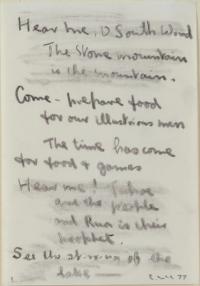 Hear me, O South Wind
The Stone mountain
is the mountain.
Come - prepare food
for our illustrious men
The time has come
for food & games
Hear me!
and the people
and is their
prophet.
See the of the
lake
77